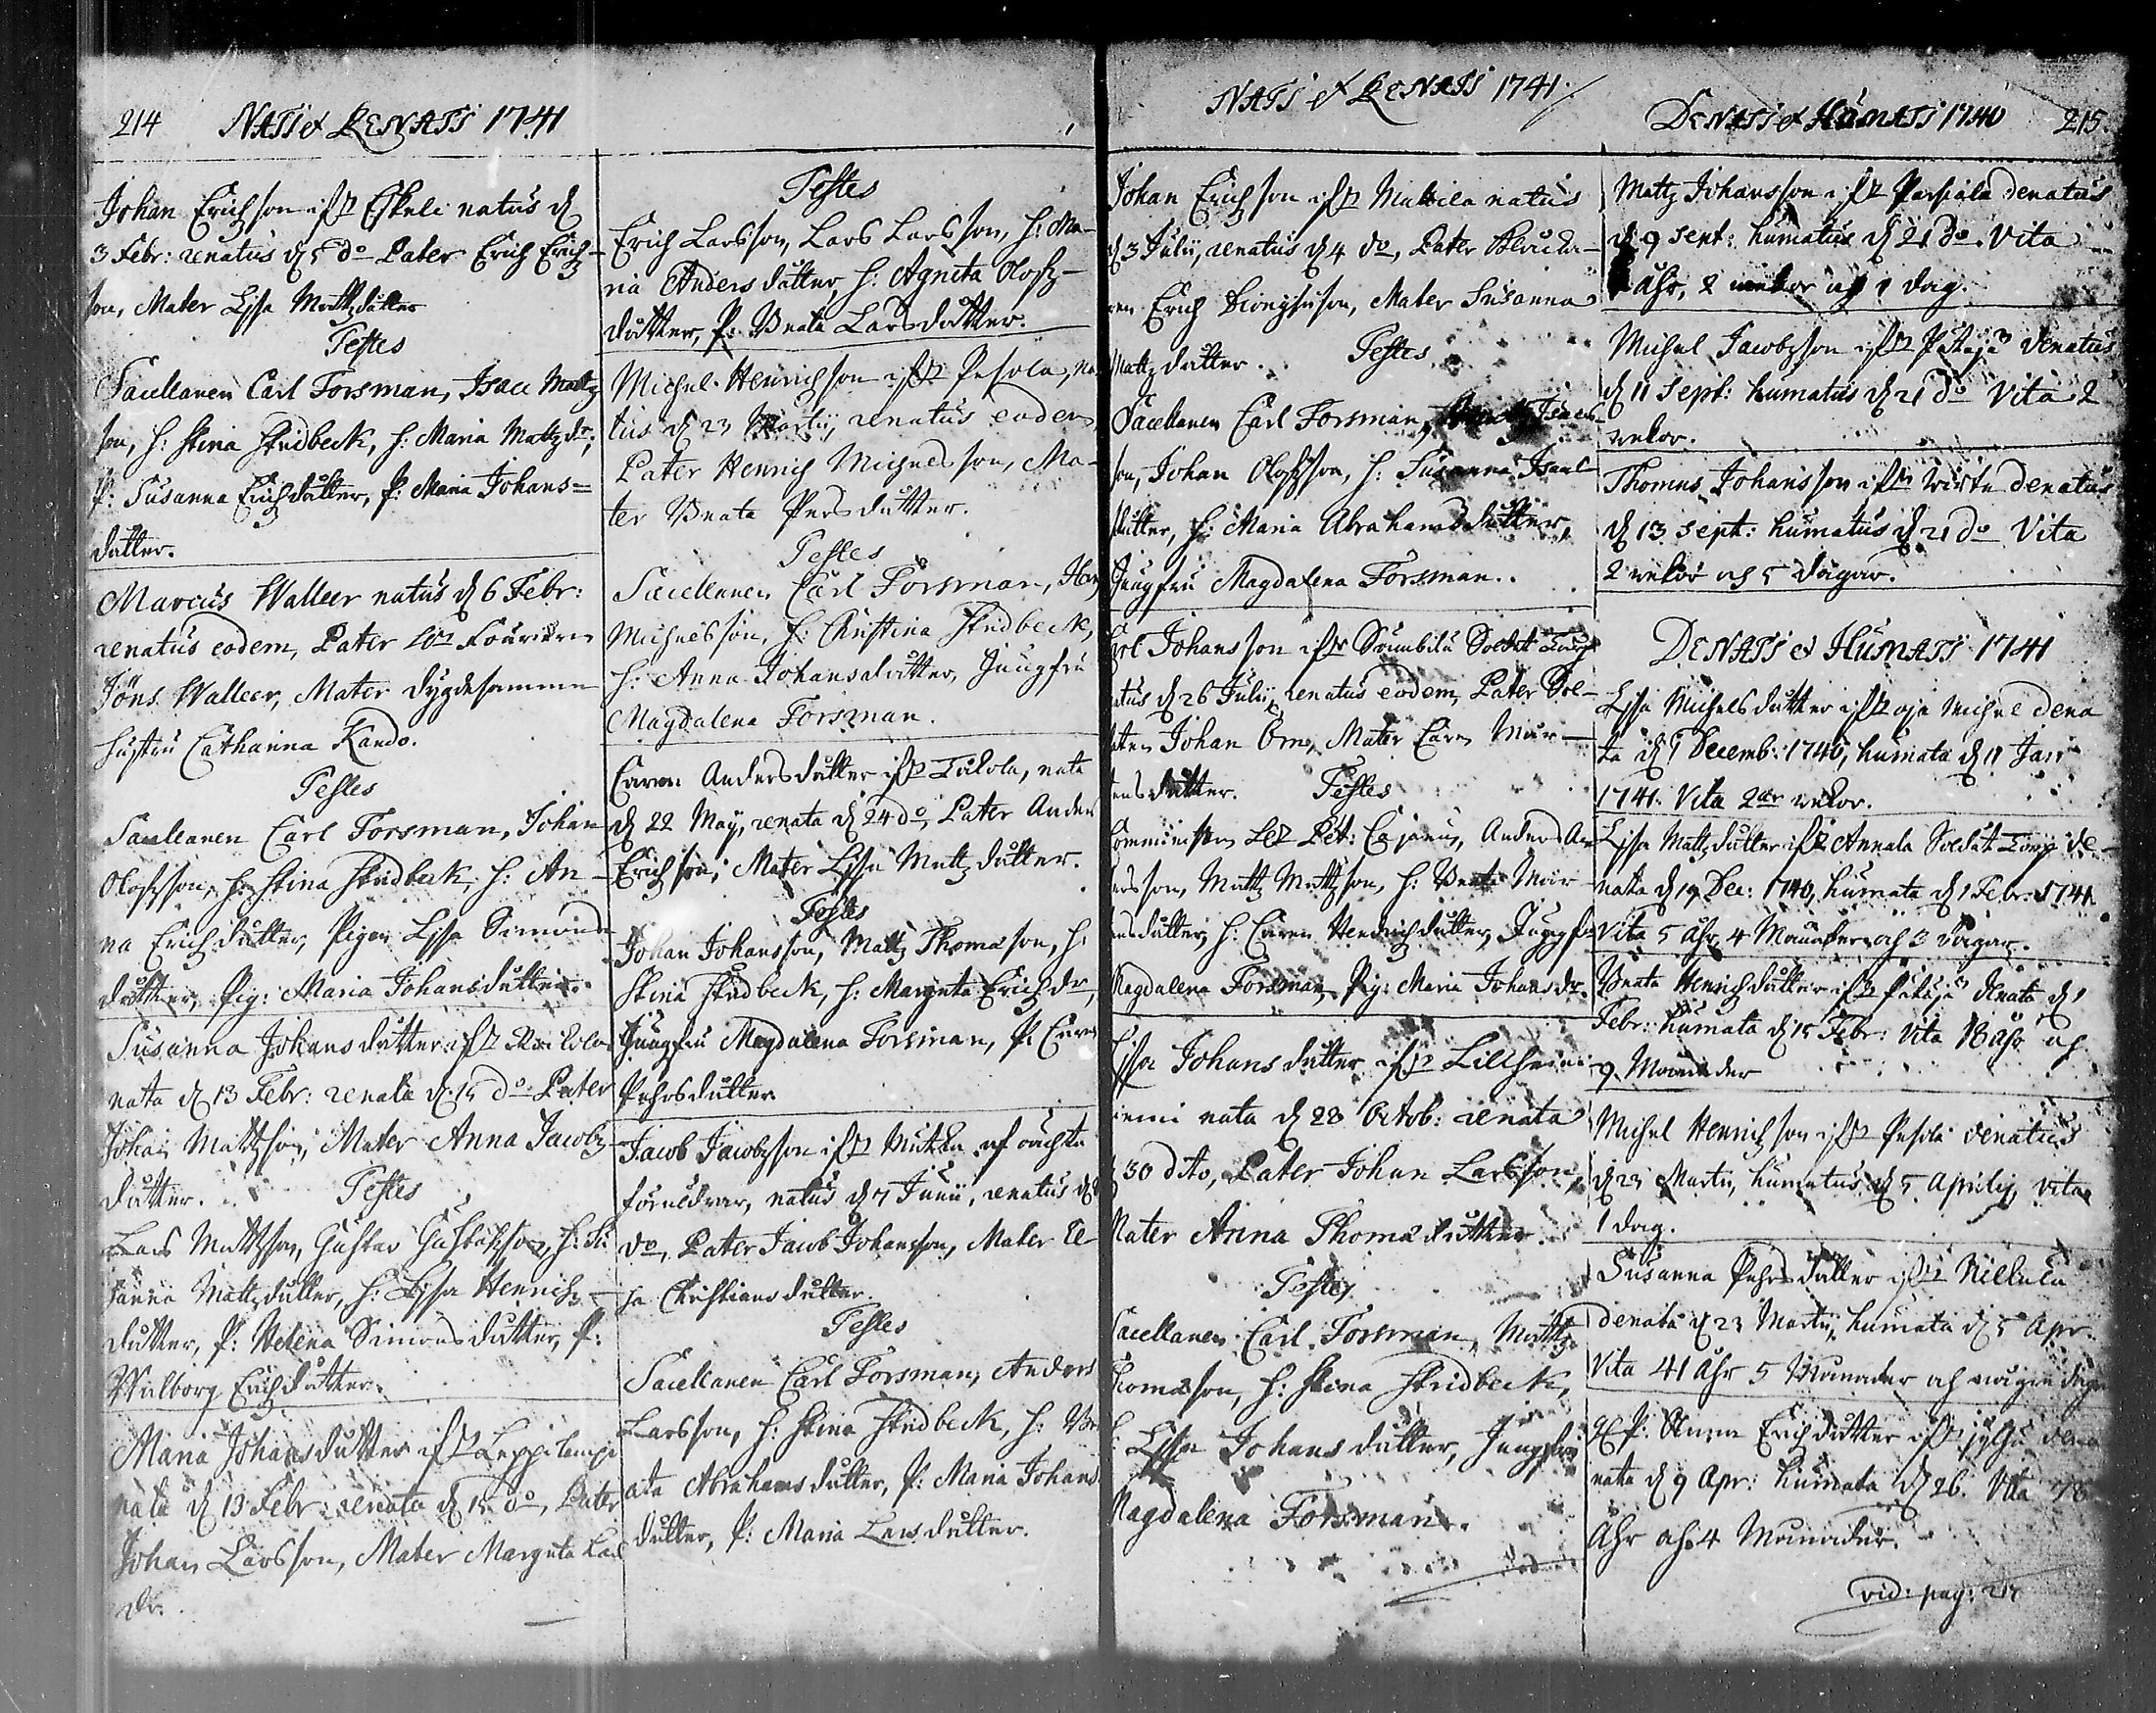 214 NATI et RENATI 1741
Johan Erichson ifr Eskeli natus d
3 Febr: renatus d 5 do Pater Erich Erich-
son, Mater Lissa Mattzdotter
Testes
Sacellanen Carl Forsman, Isaac Mattz
son, h: Stina Skridbeck, h: Maria Mattzdr,
P: Susanna Erichdotter, P: Maria Johans=
dotter.
Marcus Walleer natus d 6 Febr:
renatus eodem, Pater Fourieren
Jöns Walleer, Mater dygdesamma
hustru Catharina Kando.
Testes
Sacellanen Carl Forsman, Johan
Olofsson, h: Stina Skridbeck, h: An-
na Erichdotter, Pigan Lissa Simons
dotter, Pig: Maria Johansdotter.
Susanna Johansdotter ifr
nata d 13 Febr: renata d 15 do Pater
Johan Mattzson, Mater Anna Jacobz
dotter. Testes
Lars Mattzson, Gustav Gustafsson, h: Su
sanna Mattzdotter, h: Lissa Henrichz-
dotter, P: Helena Simonsdotter, P:
Walborg Erichdotter.
Maria Johansdotter ifr Leppilampi
nata d 13 Febr: renata d 15 do, Pater
Johan Larsson, Mater Margeta Lars
dr.
Testes
Erich Larsson, Lars Larsson, h: Ma-
ria Andersdotter, h: Agneta Olofz-
dotter, P: Beata Larsdotter.
Michel Henrichson ifr Pesola, na
tus d 23 Martij, renatus eodem,
Pater Henrich Michelsson, Ma-
ter Beata Persdotter.
Testes
Sacellanen Carl Forsman,
Michelsson, h: Christina Skridbeck,
h: Anna Johansdotter, Jungfru
Magdalena Forsman.
Caren Andersdotter ifr Talola, nata
d 22 Maij, renata d 24 do, Pater Anders
Erichson, Mater Lissa Mattzdotter.
Testes
Johan Johansson, Mattz Thomasson, h:
Stina Skridbeck, h: Margeta Erichdr,
Jungfru Magdalena Forsman, P. Caren
Pehrsdotter
Jacob Jacobsson ifr Mutka af oächta
föräldrar, natus d 7 Junii, renatus d
do, Pater Jacob Johansson, Mater Li-
sa Christiansdotter.
Testes
Sacellanen Carl Forsman, Anders
Larsson, h: Stina Skridbeck, h: Be
ata Abrahamsdotter, P: Maria Johans
dotter, P: Maria Larsdotter.
NATI et RENATI 1741.
Johan Erichson ifr Mattila natus
d 3 Julij, renatus d 4 do, Pater
Erich Dionysiuson, Mater Susanna
Mattzdotter. Testes
Sacellanen Carl Forsman,
son, Johan Olofsson, h: Susanna Isaac
dotter, h: Maria Abrahamsdotter,
Jungfru Magdalena Forsman.
Johansson ifr Soldat Torp
natus d 26 Julij, renatus eodem, Pater Sol-
daten Johan Örn, Mater Caren Mår-
tensdotter. Testes
Pet: Cajanus, Anders An
dersson, Mattz Mattzson, h: Beata Mår
tensdotter, h: Caren Hendrichdotter, Jungfr
Magdalena Forsman, Pig: Maria Johansdr.
Lissa Johansdotter ifr Lillheini
niemi nata d 28 Octob: renata
30 dito, Pater Johan Larsson,
Mater Anna Thomædotter.
Testes
Sacellanen Carl Forsman, Mattz
Thomasson, h: Stina Skridbeck,
h: Lissa Johansdotter, Jungfru
Magdalena Forsman.
DENATI et HUMATI 1740 215.
Mattz Johansson ifr Parsiala denatus
d 9 Sept: humatus d 21 do. Vita
Åhr, 2 wekor och 1 dag.
Michel Jacobsson ifr Pätäjä denatus
d 11 Sept: humatus d 21 do Vita 2
wekor.
Thomas Johansson ifr denatus
d 13 Sept: humatus d 21 do Vita
2 wekor och 5 dagar.
DENATI et HUMATI 1741
Lissa Michelsdotter ifr dena
ta d 9 Decemb: 1740, humata d 11 Jan
1741. Vita 2 wekor.
Lissa Mattzdotter ifr Annala Soldat Torp de-
nata d 19 Dec: 1740, humata d 1 Febr: 1741
Vita 5 Åhr 4 Månader och 3 dagar.
Beata Henrichdotter ifr Pätäjä denata d 1
Febr: humata d 15 Febr: Vita 18 Åhr och
9 Månader
Michel Henrichson ifr Pesola denatus
d 23 Martij, humatus d 5 Aprilij, Vita
1 dag.
Susanna Pehrsdotter ifr
denata d 23 Martij, humata d 5 Apr.
Vita 41 Åhr 5 Månader och någre dagar
Erichdotter ifr dena
nata d 9 Apr: humata d 26. Vita 78
Åhr och 4 Månader.
vid: pag: 217